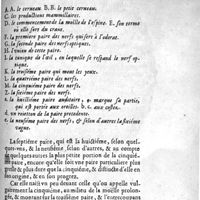 A. A. le cerveau B. B. le petit cerveau.
C. les productions mammillaires.
D. le commencement de la moëlle de l'espine. E. son terme
où elle sort du crane.
F. la premiere paire des nerfs qui sert à l'odorat.
G. la seconde paire des nerfs optiques.
H. l'union de cette paire.
I. la tunique de l'œil, en laquelle se respand le nerf optique.
K. la troisiéme paire qui meut les yeux.
L. la quatriéme paire des nerfs.
M. la cinquiéme paire des nerfs.
la sixiéme paire des nerfs.
la huictiéme paire audi­toire, marque sa partie,
qui est portée aux oreilles. b. c. aux costez.
un rejetton de la paire precedente.
la neufiéme paire, & selon d'autres la sixiéme
vague.
La septiéme paire, qui est la huictiéme, selon quelques-uns,
& la neufiéme, selon d'autres, & au compte
de quelques autres la plus petite portion de la cinquiéme
paire, encore qu'elle soit une paire particuliere plus
grelle & plus dure que la cinquiéme, & distincte d'elle en
son origine, & en sa distribution.
Car elle naist un peu devant celle qu'on appelle vulgairement
la cinquiéme, au milieu de la moëlle prolongée,
& montant sur la troisiéme & l'accompagnant,